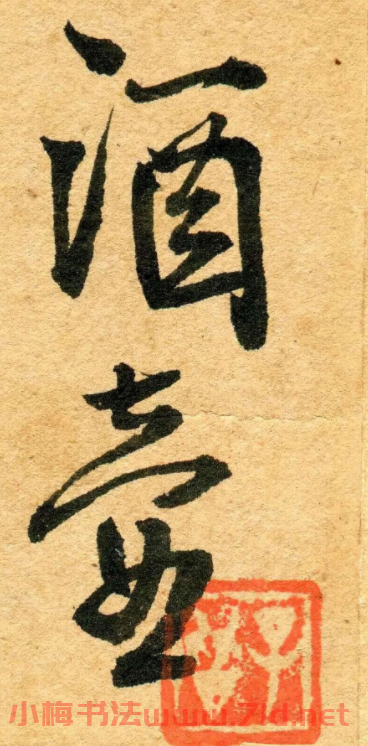 酒壺
小梅书法www.7ld.net